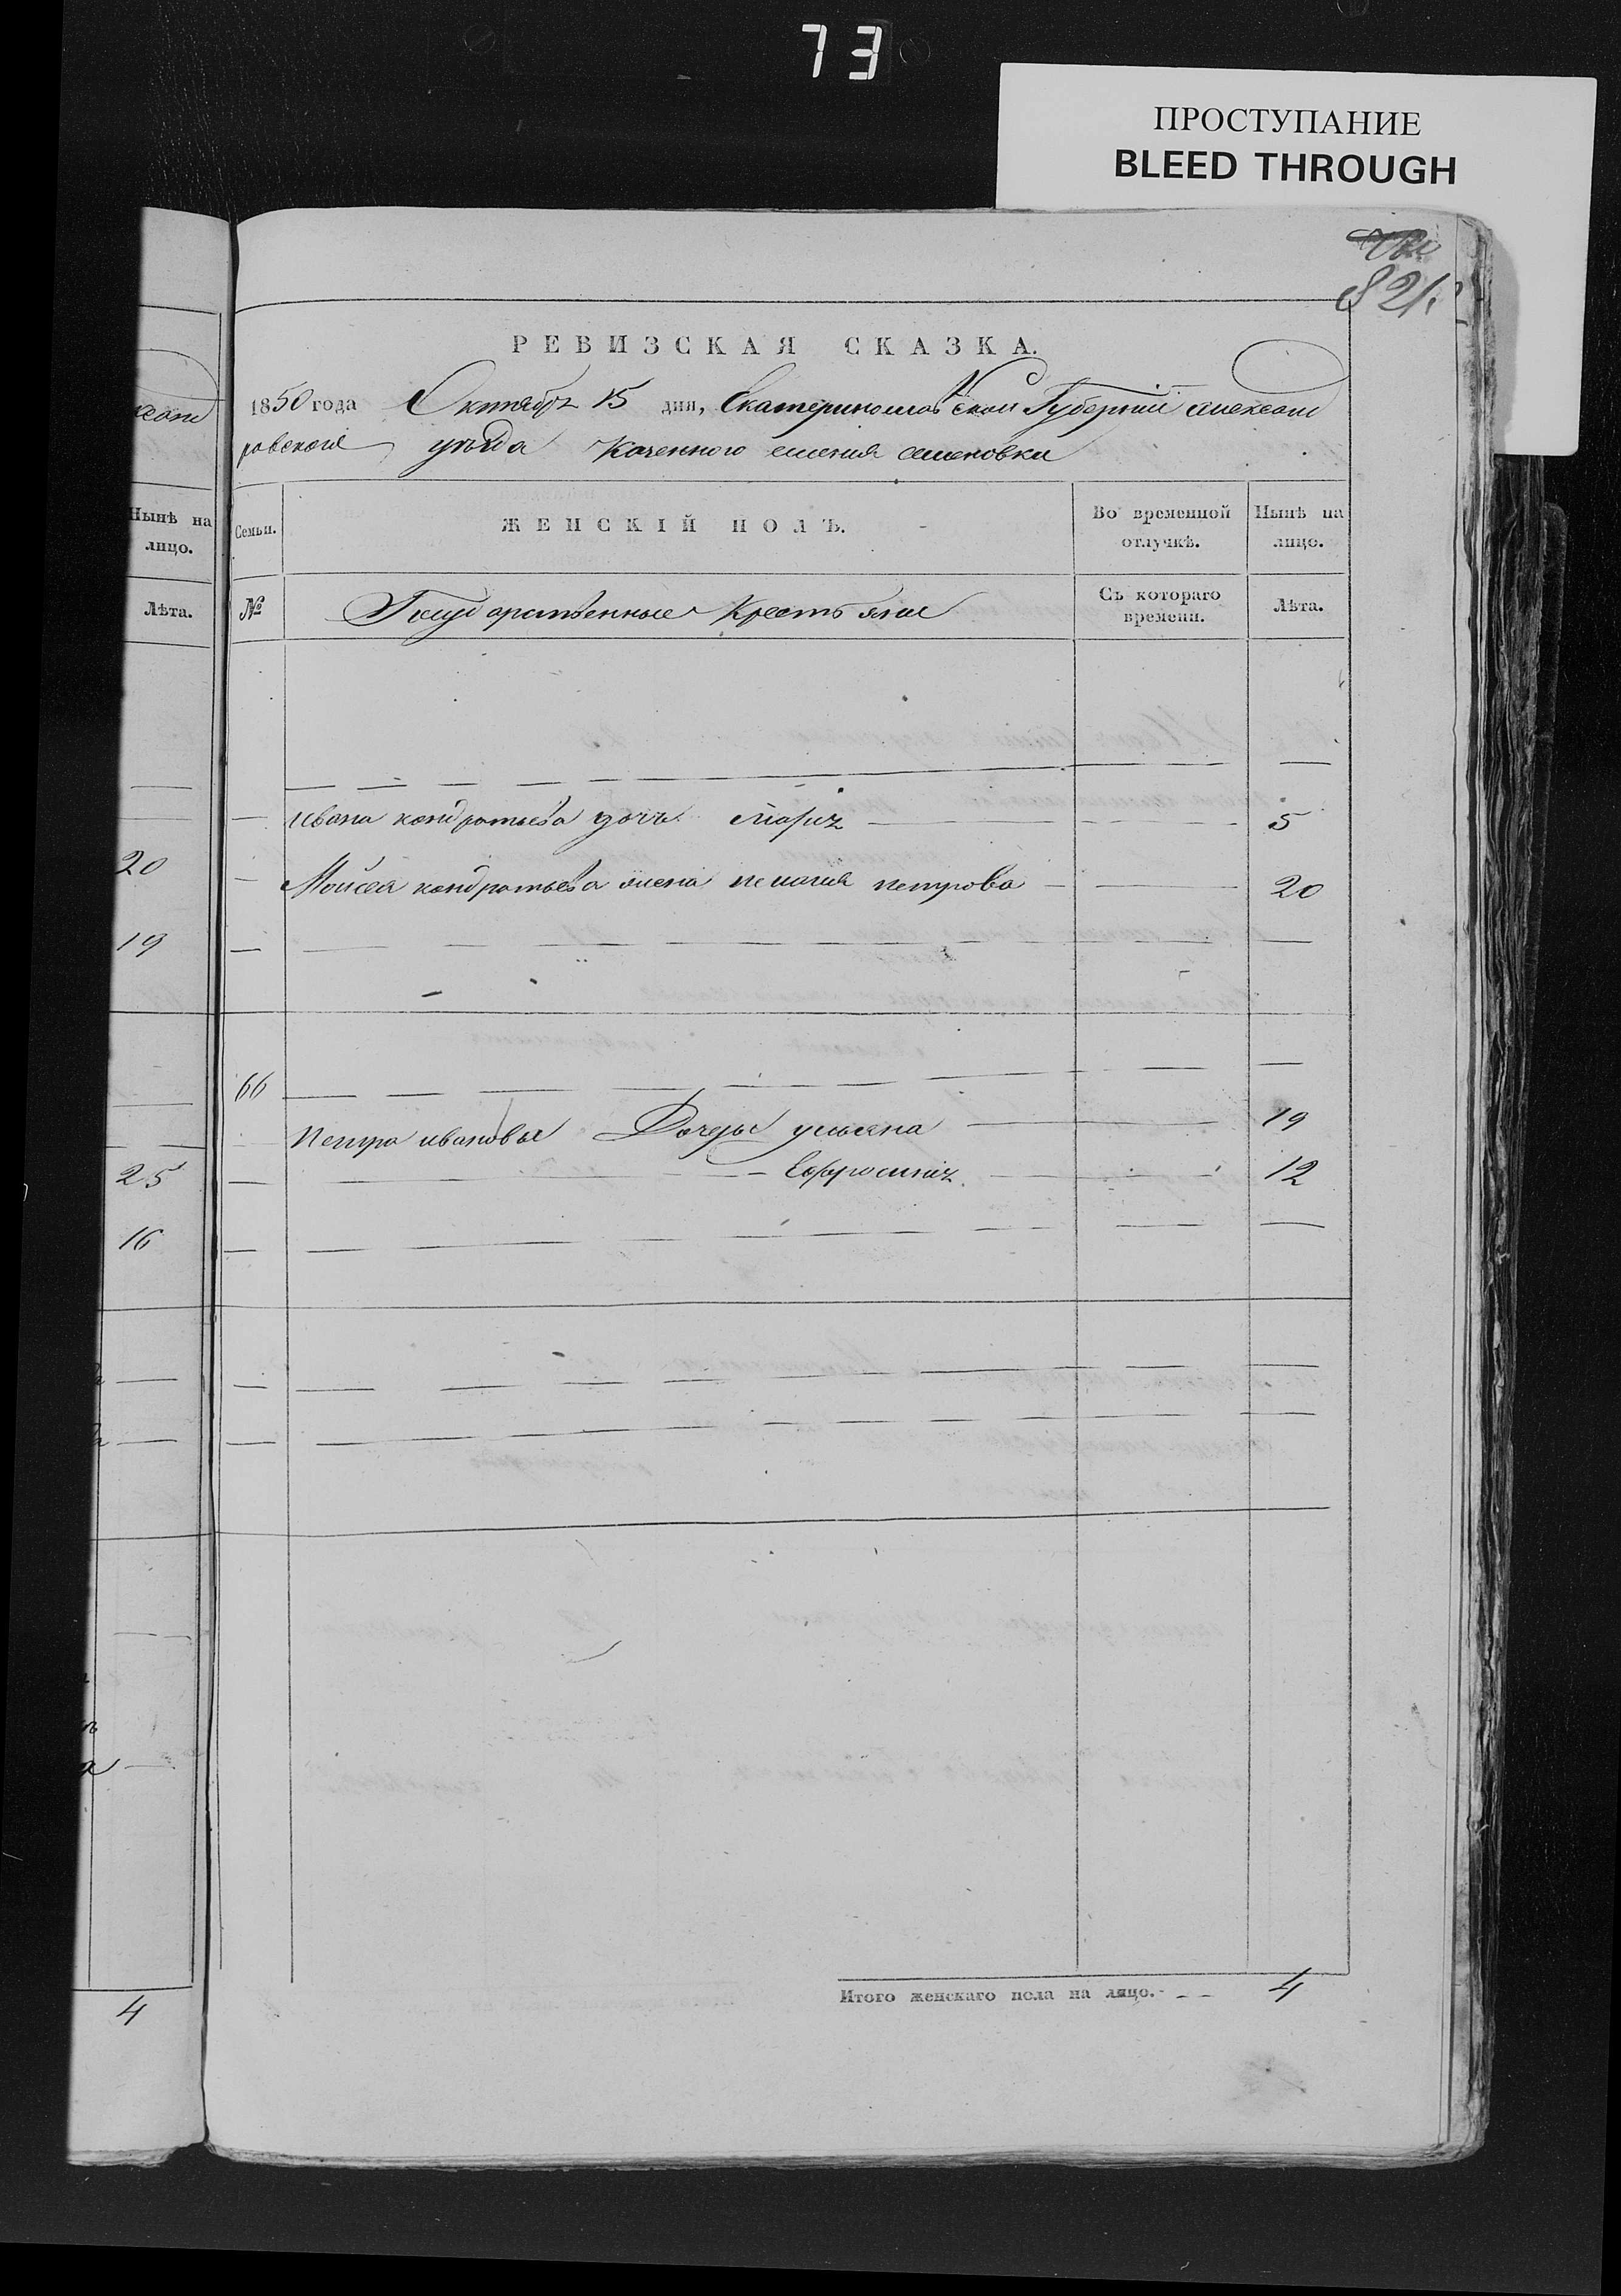 73
ПРОСТУПАНИЕ
BLEED THROUGH
821
РЕВИЗСКАЯ СКАЗКА.
1850 года Октября 15 дня, Екатеринославской Губернии александ
ровского уезда Казенного имения
Нынѣ на лицо.
Лѣта.
Семьи.
ЖЕНСКІЙ ПОЛЪ.
Во временной отлучкѣ.
Нынѣ на лицо.
№
Государственные Крестьяне
Съ котораго времени.
Лѣта.
Ивана кондратьева дочь Марія 5
20
Моисея кондратьева жена пелагия петрова 20
19
66
Петра иванова Дочери ульяна 19
25
Ефросинія 12
16
Итого женскаго пола на лицо. 4
4